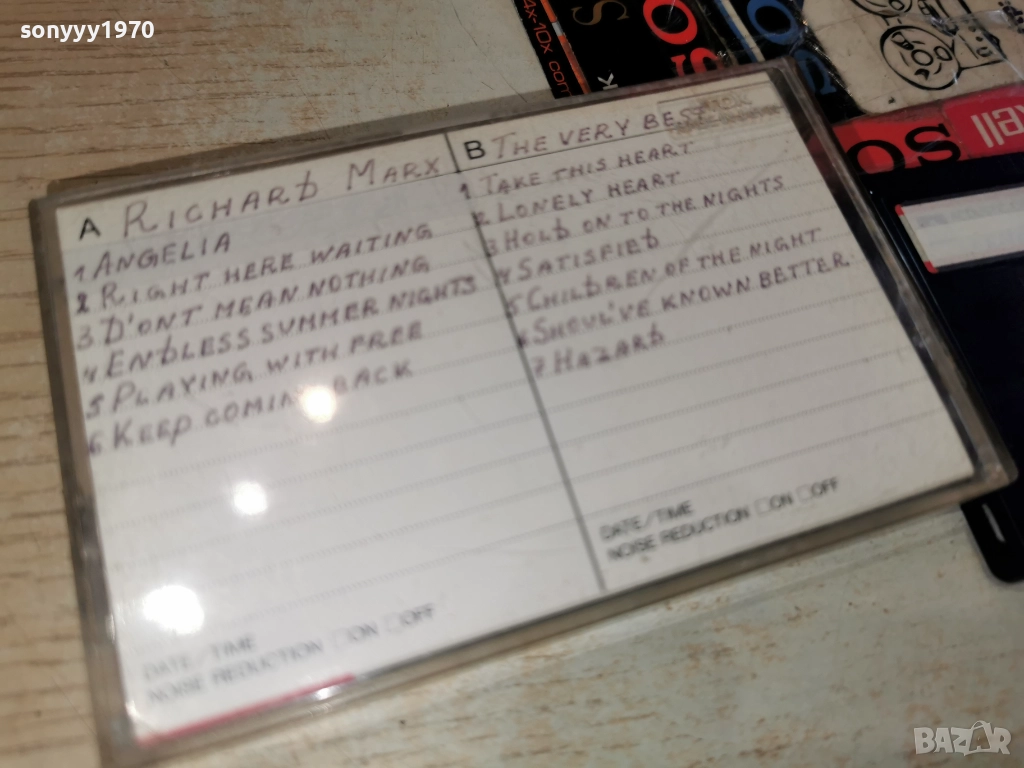 sonyyy1970
4x-10x
OS
OS
A RICHARD MARX
1 ANGELIA
2 RIGHT HERE WAITING
3 D'ONT MEAN NOTHING
4 ENDLESS SUMMER NIGHTS
5 PLAYING WITH FREE
6 KEEP COMING BACK
DATE/TIME
NOISE REDUCTION □ON □OFF
B THE VERY BEST
1 TAKE THIS HEART
2 LONELY HEART
3 HOLD ON TO THE NIGHTS
4 SATISFIED
5 CHILDREN OF THE NIGHT
6 SHOUL'VE KNOWN BETTER
7 HAZARD
DATE/TIME
NOISE REDUCTION □ON □OFF
BAZAR